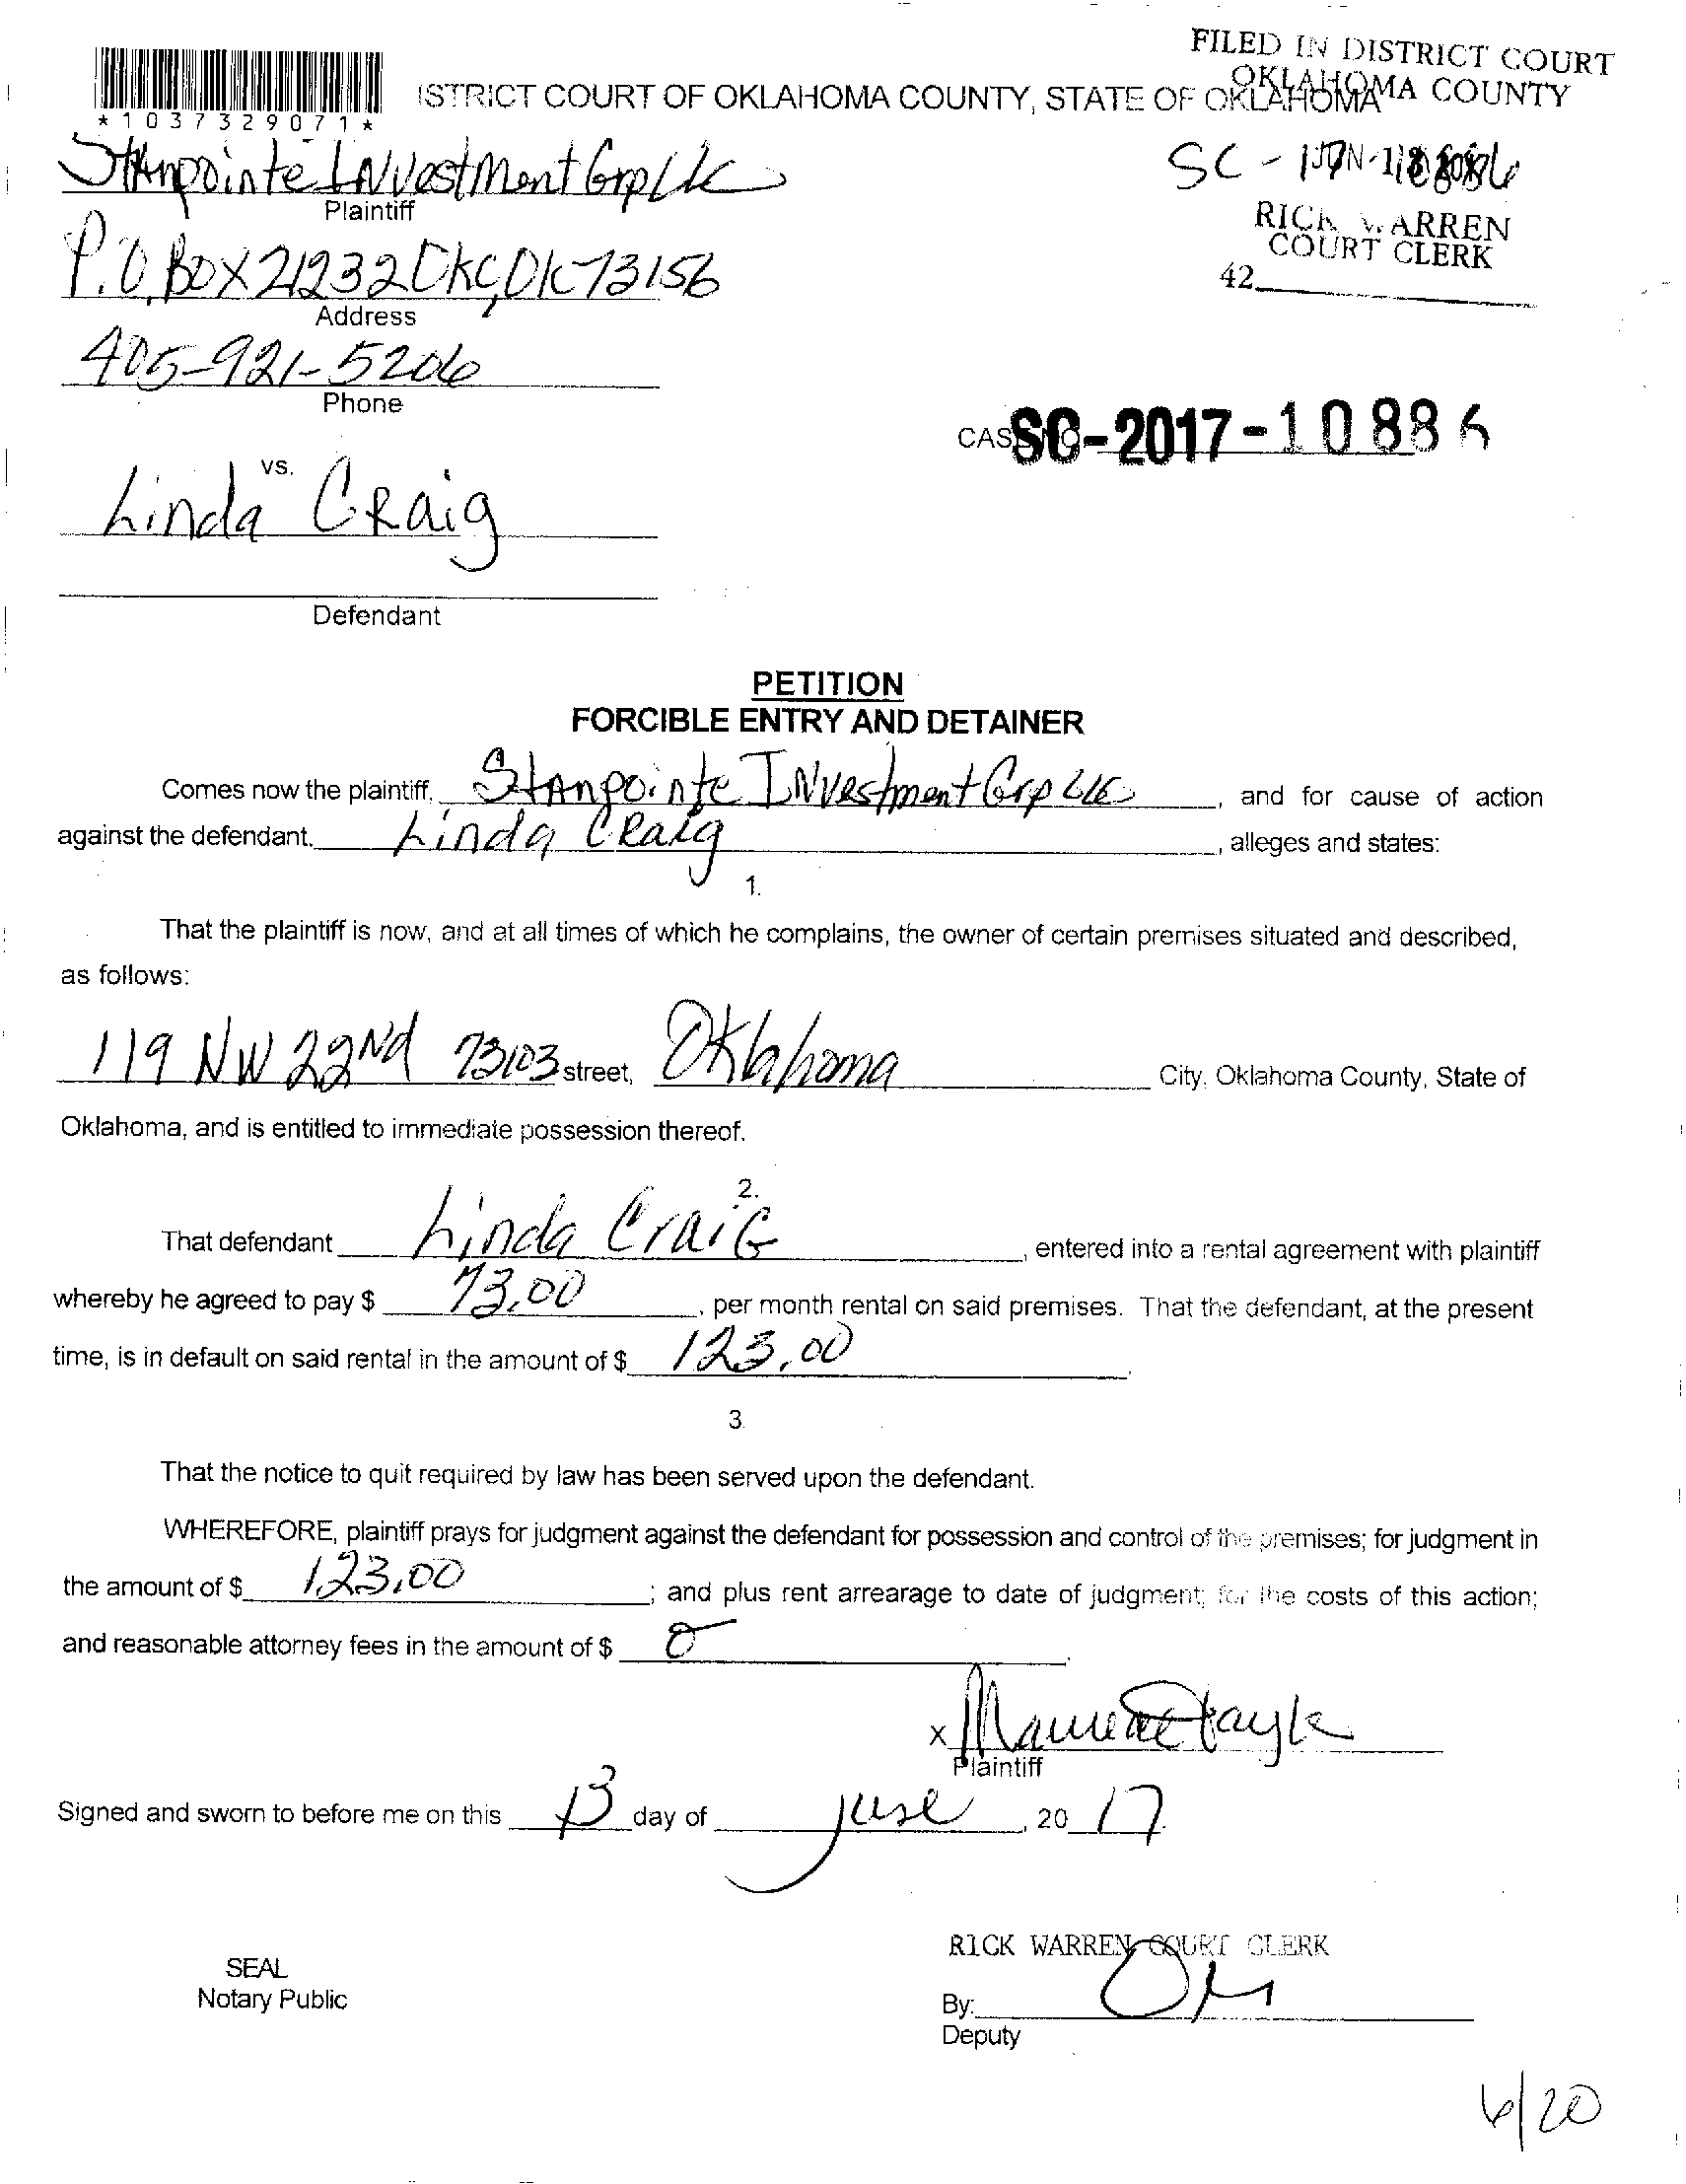 FILED IN DISTRICT COURT
OKLAHOMA COUNTY
ISTRICT COURT OF OKLAHOMA COUNTY, STATE OF OKLAHOMA
*1037329071*
StAnpointe INvestment Grp LLC
Plaintiff
SC - 17-10886
RICK WARREN
COURT CLERK
42
P.O. BOX 21232 OKC, OK 73156
Address
405-921-5206
Phone
CASE NO. SC-2017-10886
vs.
Linda CRaig
Defendant
PETITION
FORCIBLE ENTRY AND DETAINER
Comes now the plaintiff, StAnpointe INvestment Grp LLC, and for cause of action
against the defendant, Linda CRaig, alleges and states:
1.
That the plaintiff is now, and at all times of which he complains, the owner of certain premises situated and described,
as follows:
119 NW 22Nd 73103 street, Oklahoma City, Oklahoma County, State of
Oklahoma, and is entitled to immediate possession thereof.
2.
That defendant Linda CraiG, entered into a rental agreement with plaintiff
whereby he agreed to pay $ 73.00, per month rental on said premises. That the defendant, at the present
time, is in default on said rental in the amount of $ 123.00.
3.
That the notice to quit required by law has been served upon the defendant.
WHEREFORE, plaintiff prays for judgment against the defendant for possession and control of the premises; for judgment in
the amount of $ 123.00; and plus rent arrearage to date of judgment; for the costs of this action;
and reasonable attorney fees in the amount of $ 0.
x
Plaintiff
Signed and sworn to before me on this 13 day of June, 2017.
RICK WARREN COURT CLERK
SEAL
Notary Public
By:
Deputy
6/20